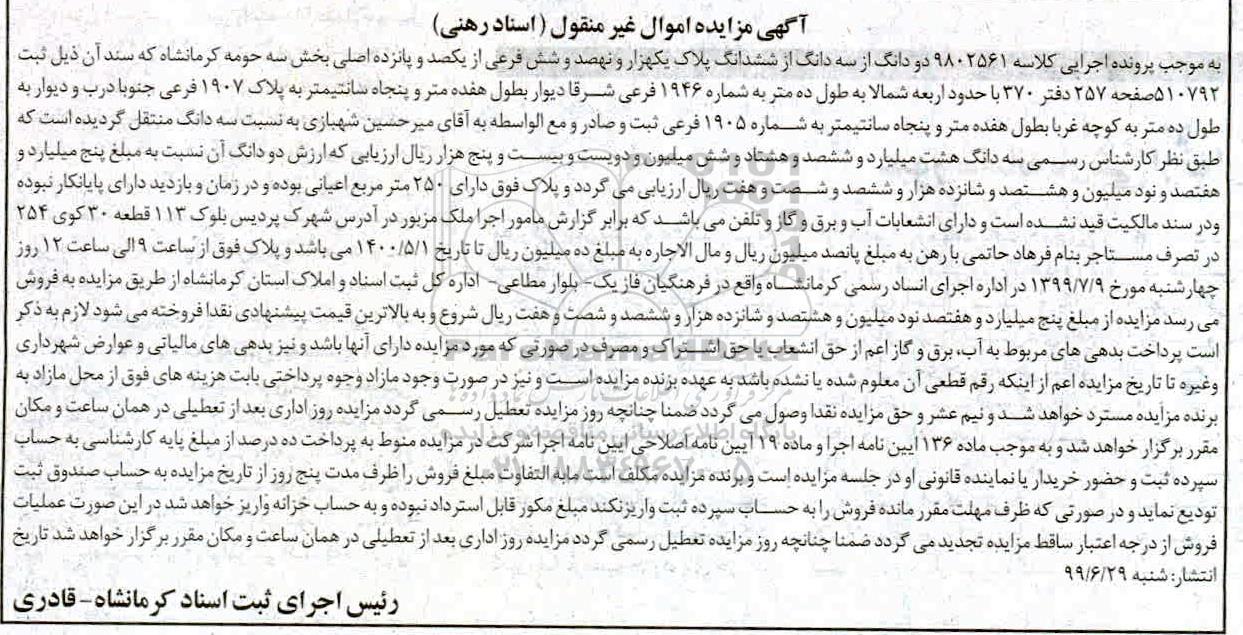 آگهی مزایده اموال غیر منقول (اسناد رهنی)
به موجب پرونده اجرایی کلاسه ۹۸۰۲۵۶۱ دو دانگ از سه دانگ از ششدانگ پلاک یکهزار و نهصد و شش فرعی از یکصد و پانزده اصلی بخش سه حومه کرمانشاه که سند آن ذیل ثبت
۵۱۰۷۹۲صفحه ۲۵۷ دفتر ۳۷۰ با حدود اربعه شمالا به طول ده متر به شماره ۱۹۴۶ فرعی شرقا دیوار بطول هفده متر و پنجاه سانتیمتر به پلاک ۱۹۰۷ فرعی جنوبا درب و دیوار به
طول ده متر به کوچه غربا بطول هفده متر و پنجاه سانتیمتر به شماره ۱۹۰۵ فرعی ثبت و صادر و مع الواسطه به آقای میرحسین شهبازی به نسبت سه دانگ منتقل گردیده است که
طبق نظر کارشناس رسمی سه دانگ هشت میلیارد و ششصد و هشتاد و شش میلیون و دویست و بیست و پنج هزار ریال ارزیابی که ارزش دو دانگ آن نسبت به مبلغ پنج میلیارد و
هفتصد و نود میلیون و هشتصد و شانزده هزار و ششصد و شصت و هفت ریال ارزیابی می گردد و پلاک فوق دارای ۲۵۰ متر مربع اعیانی بوده و در زمان و بازدید دارای پایانکار نبوده
ودر سند مالکیت قید نشده است و دارای انشعابات آب و برق و گاز و تلفن می باشد که برابر گزارش مامور اجرا ملک مزبور در آدرس شهرک پردیس بلوک ۱۱۳ قطعه ۳۰ کوی ۲۵۴
در تصرف مستاجر بنام فرهاد حاتمی با رهن به مبلغ پانصد میلیون ریال و مال الاجاره به مبلغ ده میلیون ریال تا تاریخ ۱۴۰۰/۵/۱ می باشد و پلاک فوق از ساعت ۹ الی ساعت ۱۲ روز
چهارشنبه مورخ ۱۳۹۹/۷/۹ در اداره اجرای اسناد رسمی کرمانشاه واقع در فرهنگیان فاز یک- بلوار مطاعی- اداره کل ثبت اسناد و املاک استان کرمانشاه از طریق مزایده به فروش
می رسد مزایده از مبلغ پنج میلیارد و هفتصد نود میلیون و هشتصد و شانزده هزار و ششصد و شصت و هفت ریال شروع و به بالاترین قیمت پیشنهادی نقدا فروخته می شود لازم به ذکر
است پرداخت بدهی های مربوط به آب، برق و گاز اعم از حق انشعاب یا حق اشتراک و مصرف در صورتی که مورد مزایده دارای آنها باشد و نیز بدهی های مالیاتی و عوارض شهرداری
وغیره تا تاریخ مزایده اعم از اینکه رقم قطعی آن معلوم شده یا نشده باشد به عهده برنده مزایده است و نیز در صورت وجود مازاد وجوه پرداختی بابت هزینه های فوق از محل مازاد به
برنده مزایده مسترد خواهد شد و نیم عشر و حق مزایده نقدا وصول می گردد ضمنا چنانچه روز مزایده تعطیل رسمی گردد مزایده روز اداری بعد از تعطیلی در همان ساعت و مکان
مقرر برگزار خواهد شد و به موجب ماده ۱۳۶ ایین نامه اجرا و ماده ۱۹ ایین نامه اصلاحی ایین نامه اجرا شرکت در مزایده منوط به پرداخت ده درصد از مبلغ پایه کارشناسی به حساب
سپرده ثبت و حضور خریدار یا نماینده قانونی او در جلسه مزایده است و برنده مزایده مکلف است مابه التفاوت مبلغ فروش را ظرف مدت پنج روز از تاریخ مزایده به حساب صندوق ثبت
تودیع نماید و در صورتی که ظرف مهلت مقرر مانده فروش را به حساب سپرده ثبت واریز نکند مبلغ مکور قابل استرداد نبوده و به حساب خزانه واریز خواهد شد در این صورت عملیات
فروش از درجه اعتبار ساقط مزایده تجدید می گردد ضمنا چنانچه روز مزایده تعطیل رسمی گردد مزایده روز اداری بعد از تعطیلی در همان ساعت و مکان مقرر برگزار خواهد شد تاریخ
انتشار: شنبه ۹۹/۶/۲۹
رئیس اجرای ثبت اسناد کرمانشاه- قادری